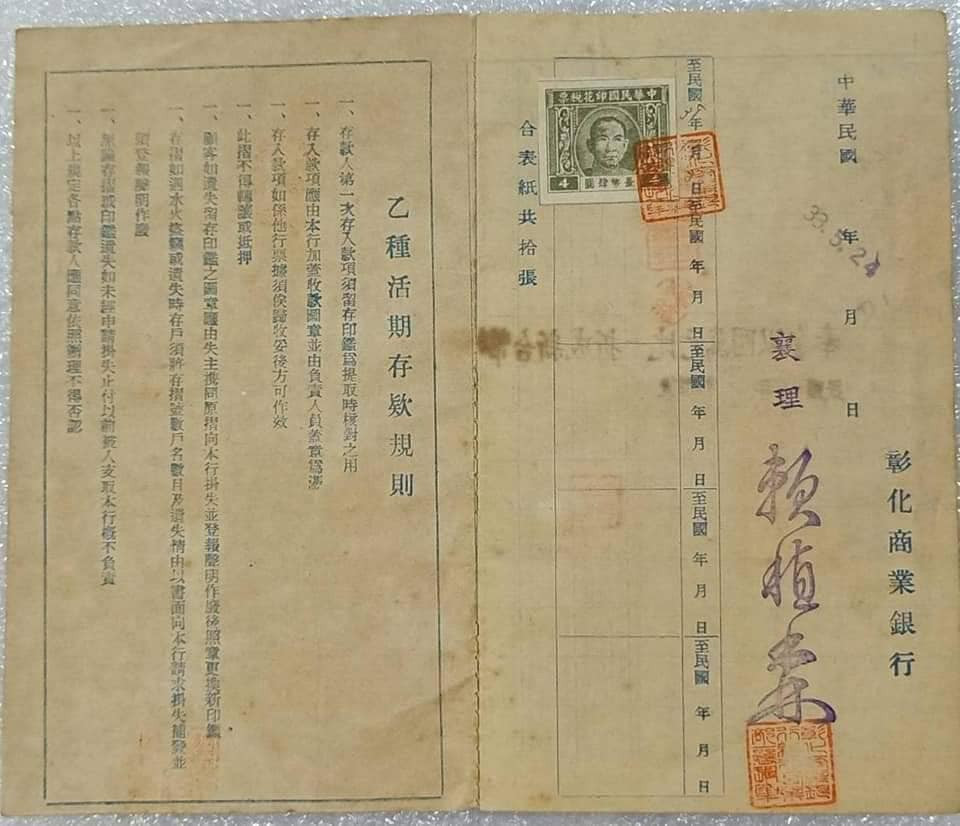 中華民國 年 月 日
38.5.24
彰化商業銀行
襄理 賴植棠
至民國 年 月 日
至民國 年 月 日
至民國 年 月 日
至民國 年 月 日
至民國 年 月 日
中華民國印花稅票
4
合表紙共拾張
乙種活期存欵規則
一、存欵人第一次存入欵項須留存印鑑爲提取時核對之用
一、存入欵項應由本行加蓋收欵圖章並由負責人員蓋章爲憑
一、存入欵項如係他行票據須俟歸收妥後方可作效
一、此摺不得轉讓或抵押
一、顧客如遺失留存印鑑之圖章應由失主携同原摺向本行掛失並登報聲明作廢後照章更換新印鑑
一、存摺如遇水火盜竊或遺失時存戶須將存摺號數戶名數目及遺失情由以書面向本行請求掛失補發並
須登報聲明作廢
一、無論存摺或印鑑遺失如未經申請掛失止付以前被人支取本行概不負責
一、以上規定各點存欵人應同意依照辦理不得否認